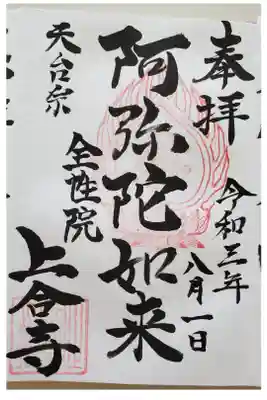 奉拝
令和三年
八月一日
阿弥陀如来
天台宗
全性院
上合寺